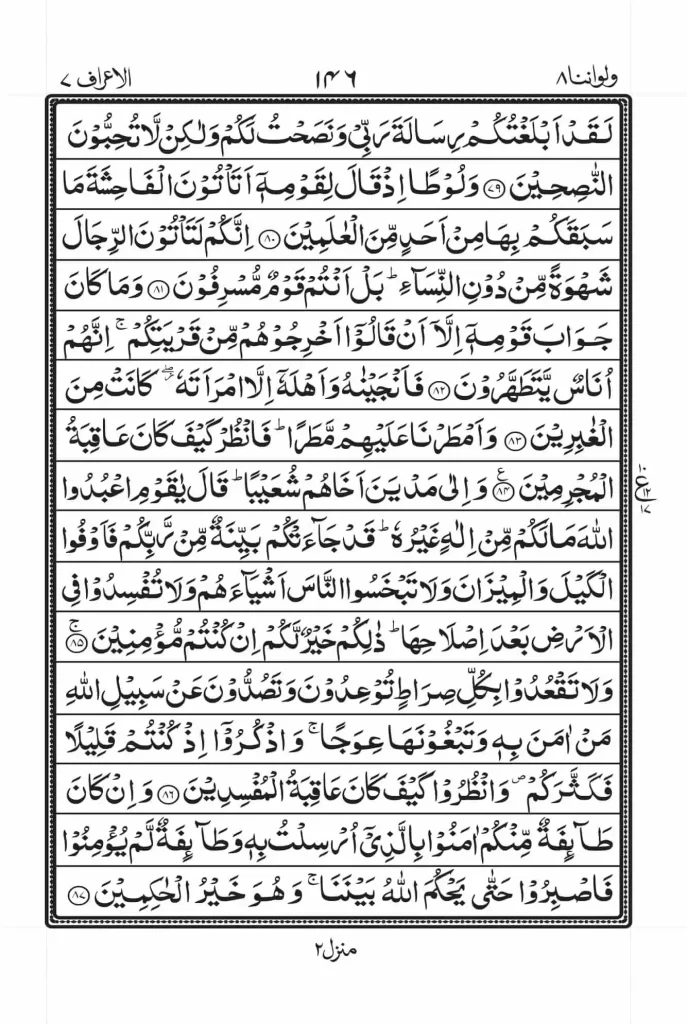 ولواننا ٨ ١٤٦ الاعراف ٧
لَقَدْ اَبْلَغْتُكُمْ رِسَالَةَ رَبِّیْ وَنَصَحْتُ لَكُمْ وَلٰكِنْ لَّا تُحِبُّوْنَ
النّٰصِحِیْنَ ﴿٧٩﴾ وَلُوْطًا اِذْ قَالَ لِقَوْمِهٖۤ اَتَاْتُوْنَ الْفَاحِشَةَ مَا
سَبَقَكُمْ بِهَا مِنْ اَحَدٍ مِّنَ الْعٰلَمِیْنَ ﴿٨٠﴾ اِنَّكُمْ لَتَاْتُوْنَ الرِّجَالَ
شَهْوَةً مِّنْ دُوْنِ النِّسَآءِ ؕ بَلْ اَنْتُمْ قَوْمٌ مُّسْرِفُوْنَ ﴿٨١﴾ وَمَا كَانَ
جَوَابَ قَوْمِهٖۤ اِلَّاۤ اَنْ قَالُوْۤا اَخْرِجُوْهُمْ مِّنْ قَرْیَتِكُمْ ۚ اِنَّهُمْ
اُنَاسٌ یَّتَطَهَّرُوْنَ ﴿٨٢﴾ فَاَنْجَیْنٰهُ وَاَهْلَهٗۤ اِلَّا امْرَاَتَهٗ ۖ٘ كَانَتْ مِنَ
الْغٰبِرِیْنَ ﴿٨٣﴾ وَاَمْطَرْنَا عَلَیْهِمْ مَّطَرًا ؕ فَانْظُرْ كَیْفَ كَانَ عَاقِبَةُ
الْمُجْرِمِیْنَ ﴿٨٤﴾ وَاِلٰی مَدْیَنَ اَخَاهُمْ شُعَیْبًا ؕ قَالَ یٰقَوْمِ اعْبُدُوا
اللّٰهَ مَا لَكُمْ مِّنْ اِلٰهٍ غَیْرُهٗ ؕ قَدْ جَآءَتْكُمْ بَیِّنَةٌ مِّنْ رَّبِّكُمْ فَاَوْفُوا
الْكَیْلَ وَالْمِیْزَانَ وَلَا تَبْخَسُوا النَّاسَ اَشْیَآءَهُمْ وَلَا تُفْسِدُوْا فِی
الْاَرْضِ بَعْدَ اِصْلَاحِهَا ؕ ذٰلِكُمْ خَیْرٌ لَّكُمْ اِنْ كُنْتُمْ مُّؤْمِنِیْنَ ﴿٨٥﴾ ۚ
وَلَا تَقْعُدُوْا بِكُلِّ صِرَاطٍ تُوْعِدُوْنَ وَتَصُدُّوْنَ عَنْ سَبِیْلِ اللّٰهِ
مَنْ اٰمَنَ بِهٖ وَتَبْغُوْنَهَا عِوَجًا ۚ وَاذْكُرُوْۤا اِذْ كُنْتُمْ قَلِیْلًا
فَكَثَّرَكُمْ ۪ وَانْظُرُوْا كَیْفَ كَانَ عَاقِبَةُ الْمُفْسِدِیْنَ ﴿٨٦﴾ وَاِنْ كَانَ
طَآىِٕفَةٌ مِّنْكُمْ اٰمَنُوْا بِالَّذِیْۤ اُرْسِلْتُ بِهٖ وَطَآىِٕفَةٌ لَّمْ یُؤْمِنُوْا
فَاصْبِرُوْا حَتّٰی یَحْكُمَ اللّٰهُ بَیْنَنَا ۚ وَهُوَ خَیْرُ الْحٰكِمِیْنَ ﴿٨٧﴾
ع ١٠ ١٤ ١٧
منزل ٢